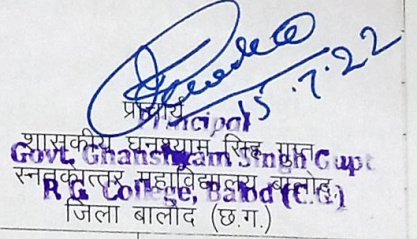 15.7.22
प्राचार्य
Principal
शासकीय घनश्याम सिंह गुप्त
Govt. Ghanshyam Singh Gupt
स्नातकोत्तर महाविद्यालय बालोद
P.G. College, Balod (C.G.)
जिला बालोद (छ.ग.)